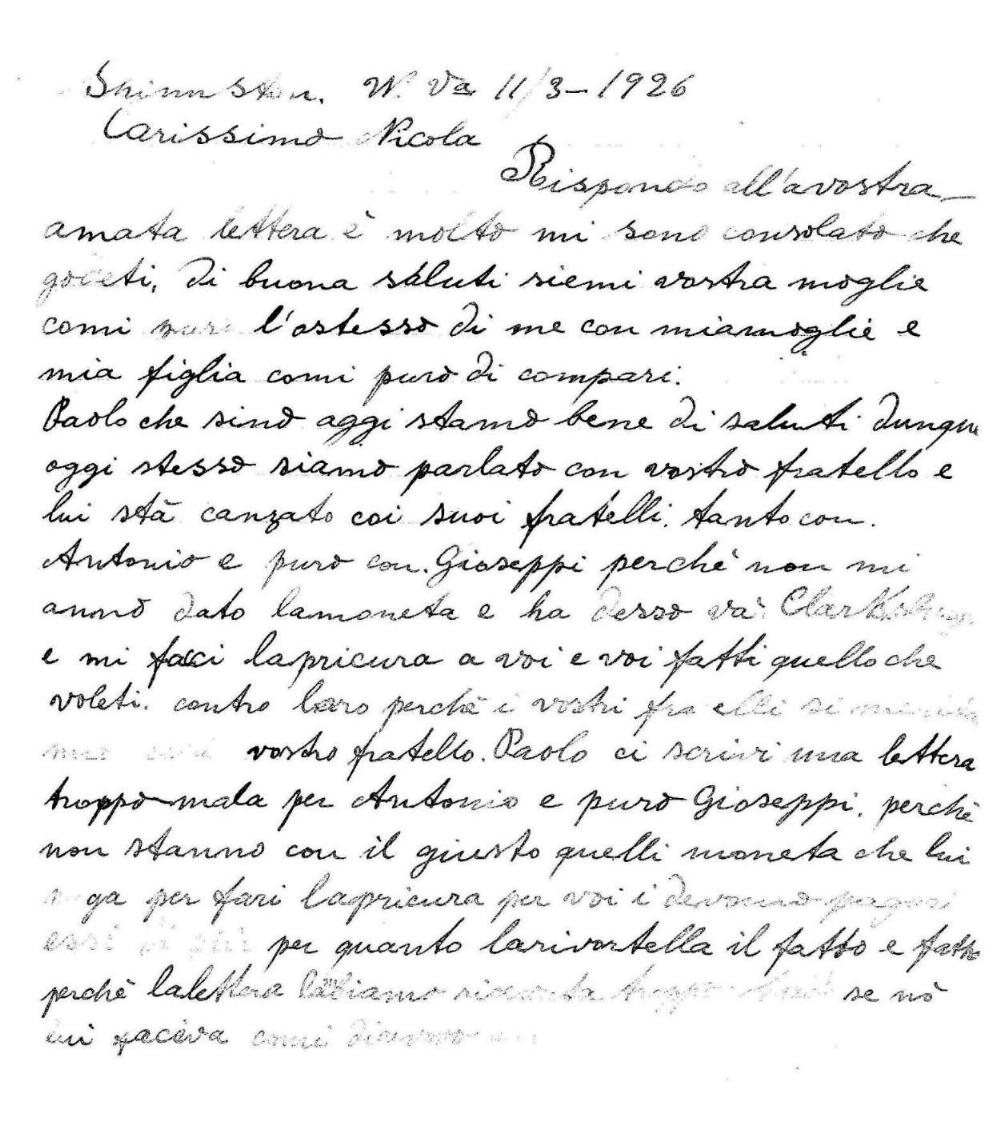 Shinnston. W. Va 11/3-1926
Carissimo Nicola
Rispondo all'avostra
amata lettera è molto mi sono consolato che
godeti, di buona saluti siemi vostra moglie
comi l'ostesso di me con miamoglie e
mia figlia comi puro di compari.
Paolo che sino aggi stamo bene di saluti dunque
oggi stesso siamo parlato con vostro fratello e
lui stà canzato coi suoi fratelli. tanto con.
Antonio e puro con. Gioseppi perchè non mi
anno dato lamoneta e ha desso va Clarksburg
e mi facci lapricura a voi e voi fatti quello che
voleti. contro loro perchè i vostri fratelli si
vostro fratello. Paolo ci scrivi una lettera
troppo mala per Antonio e puro Gioseppi. perchè
non stanno con il giusto quelli moneta che lui
per fari lapricura per voi i devono pagari
essi per quanto larivortella il fatto e fatto
perchè lalettera labiamo troppo se nò
lui faceva comi dicevono